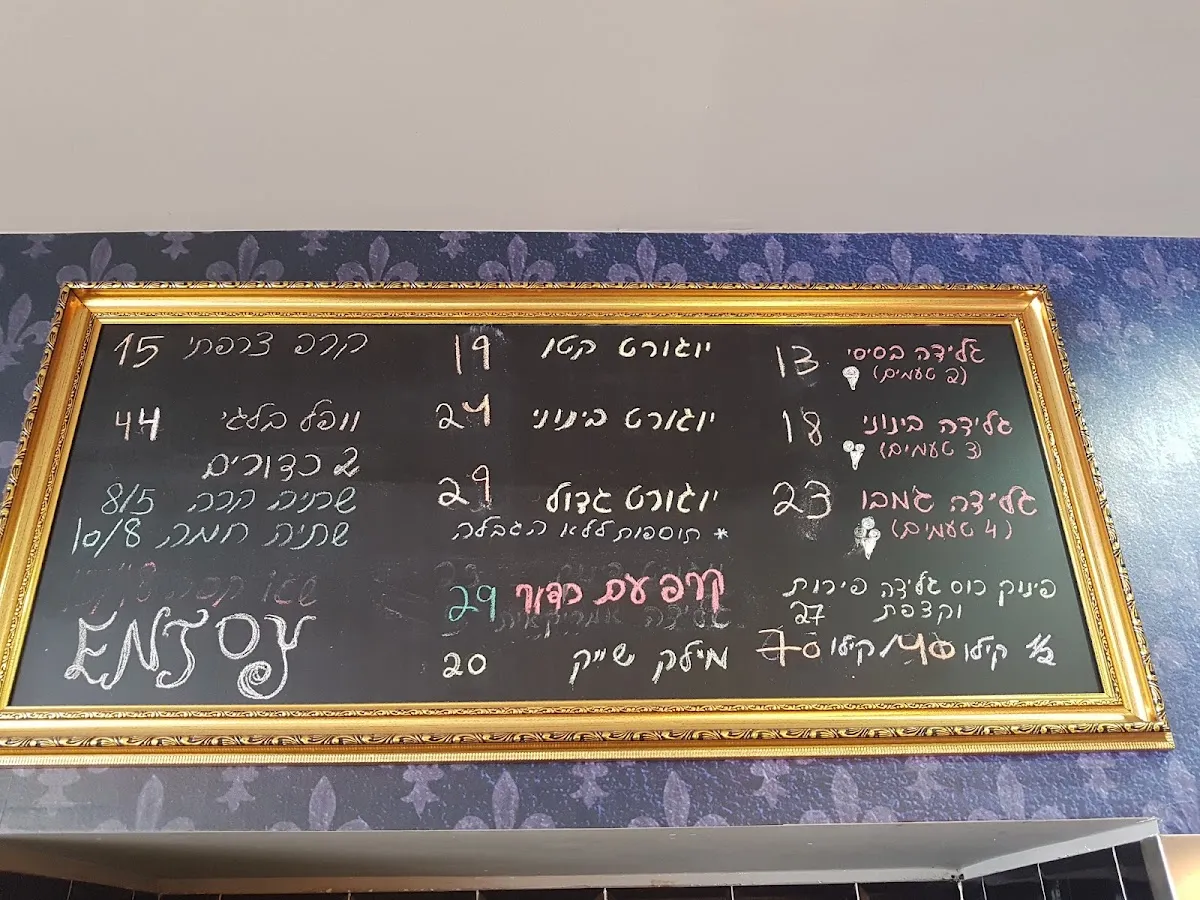 גלידה בסיסי 13
(2 טעמים)
גלידה בינוני 18
(3 טעמים)
גלידה ג'מבו 23
(4 טעמים)
פינוק כוס גלידה פירות
וקצפת 27
1/2 קילו 40/קילו 70
יוגורט קטן 19
יוגורט בינוני 24
יוגורט גדול 29
* תוספות ללא הגבלה
קרפ עם כדור 29
מילק שייק 20
קרפ צרפתי 15
וופל בלגי 44
2 כדורים
שתיה קרה 8/5
שתיה חמה 10/8
ENJOY